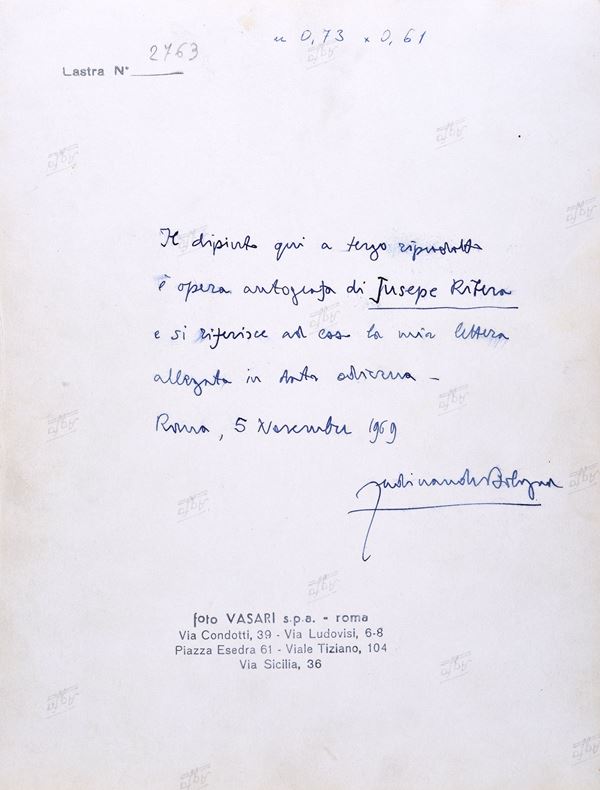 m 0,73 x 0,61
Lastra N° 2763
Il dipinto qui a tergo riprodotto
è opera autografa di Jusepe Ribera
e si riferisce ad esso la mia lettera
allegata in data odierna -
Roma, 5 Novembre 1969
Ferdinando Bologna
foto VASARI s.p.a. - roma
Via Condotti, 39 - Via Ludovisi, 6-8
Piazza Esedra 61 - Viale Tiziano, 104
Via Sicilia, 36
Agfa